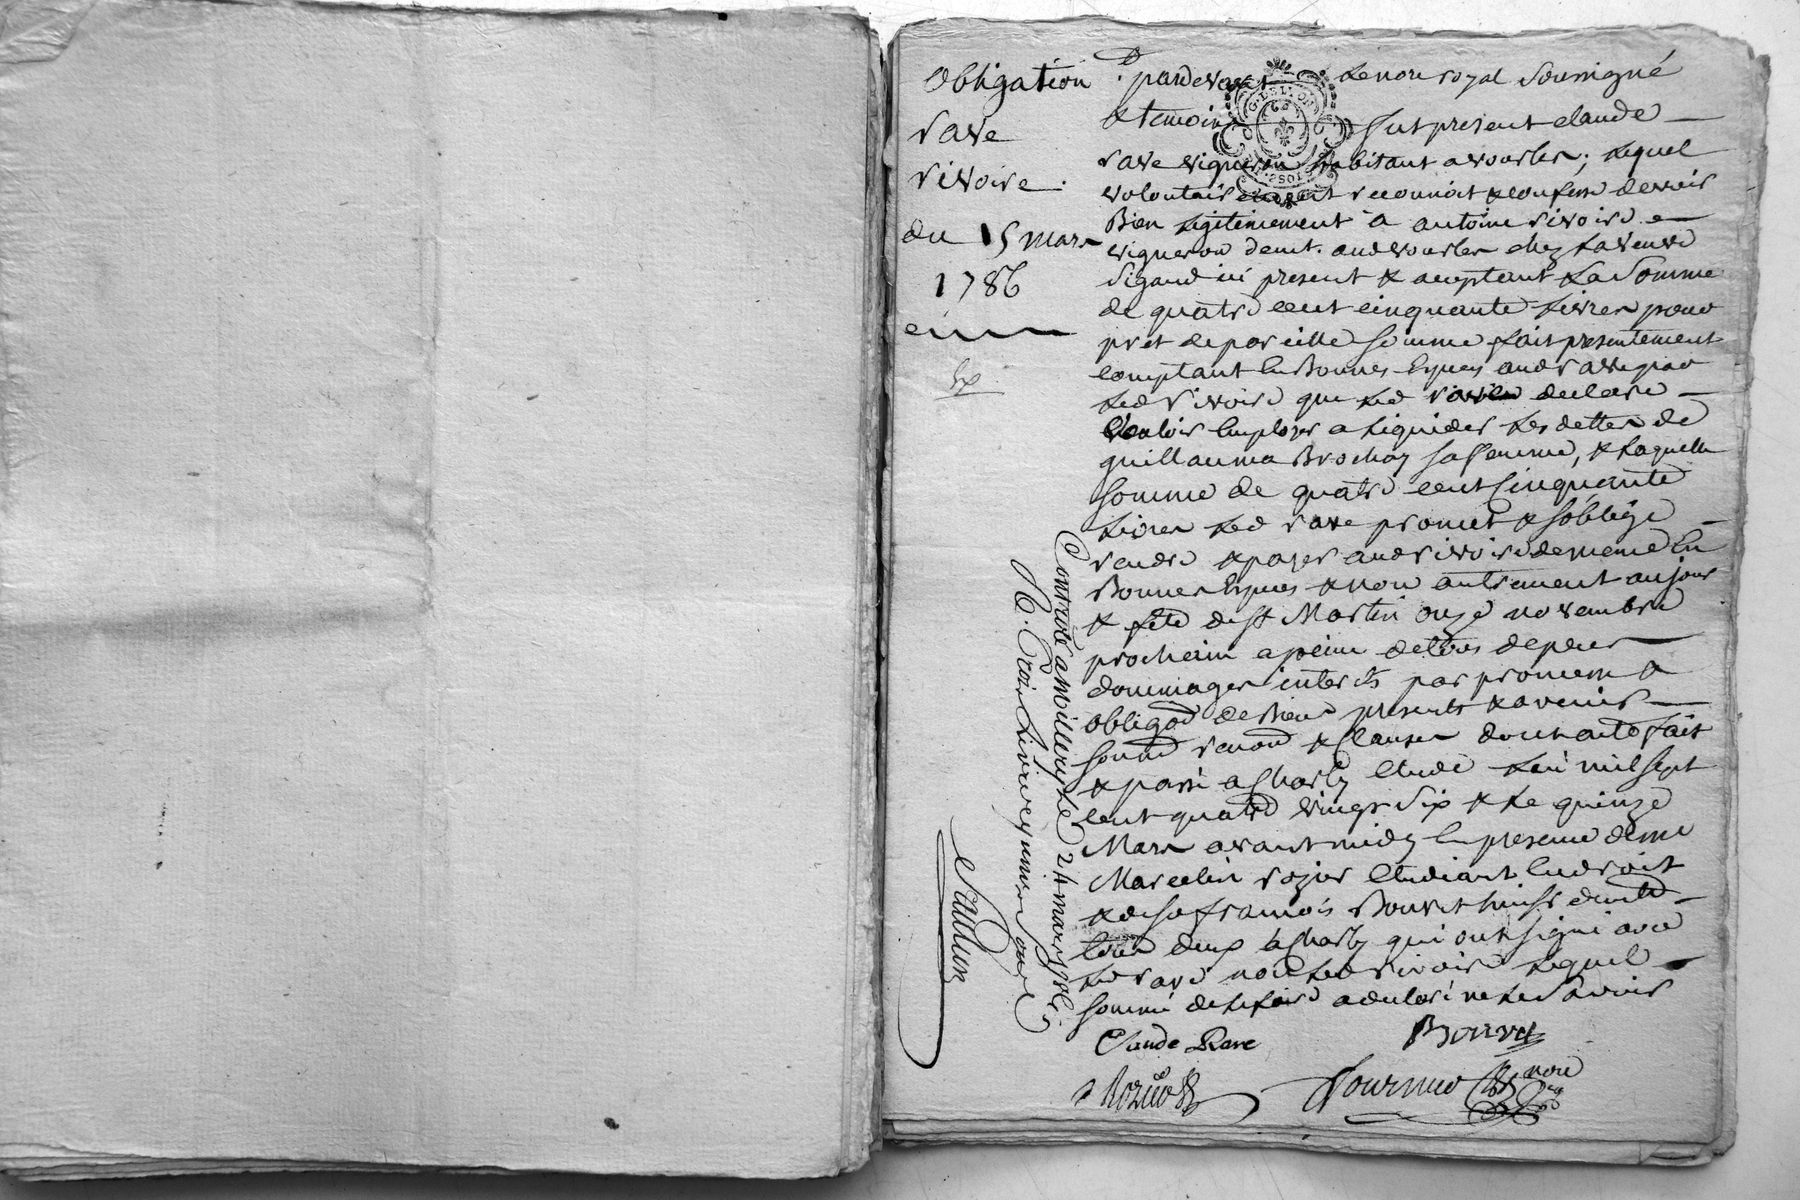 Obligation
rave
rivoire.
du 15 mars
1786
pardevant Le nore royal Soussigné
& temoins fut present claude
rave vigneron habitant a vourles; Lequel
volontairement reconnoit & confesse devoir
Bien Legitimement a antoine rivoire
vigneron demt. aud vourles chez La veuve
Sigaud ici present & acceptant La Somme
de quatre cent cinquante Livres pour
pret de pareille somme fait presentement
comptant en Bonnes Especes aud rave par
Led rivoire que Led rave declare
Vouloir Employer a Liquider Les dettes de
guillauma Brochay sa femme, & Laquelle
somme de quatre cent cinquante
Livres Led rave promet & s'oblige
rendre & payer aud rivoire de meme En
Bonnes Especes & non autrement au jour
& fete de St Martin onze novembre
prochain a peine de tous depens
dommages interets par promesse &
obligaon de Biens presents & avenir
soumo renono & Clauses dont acte fait
& passé a Charly Etude L'an mil sept
cent quatre vingt Six & Le quinze
Mars avant midy En presence de me
Marcelin rozier Etudiant En droit
& de sr francois Bouvet huissr
tous deux a Charly qui ont signé avec
Led rave non Led rivoire Lequel
sommé de Le faire a declaré ne Le Savoir
Claude Rave
Bouvet
Rozier
nore
Controlé a millery Le 24 mars 1786